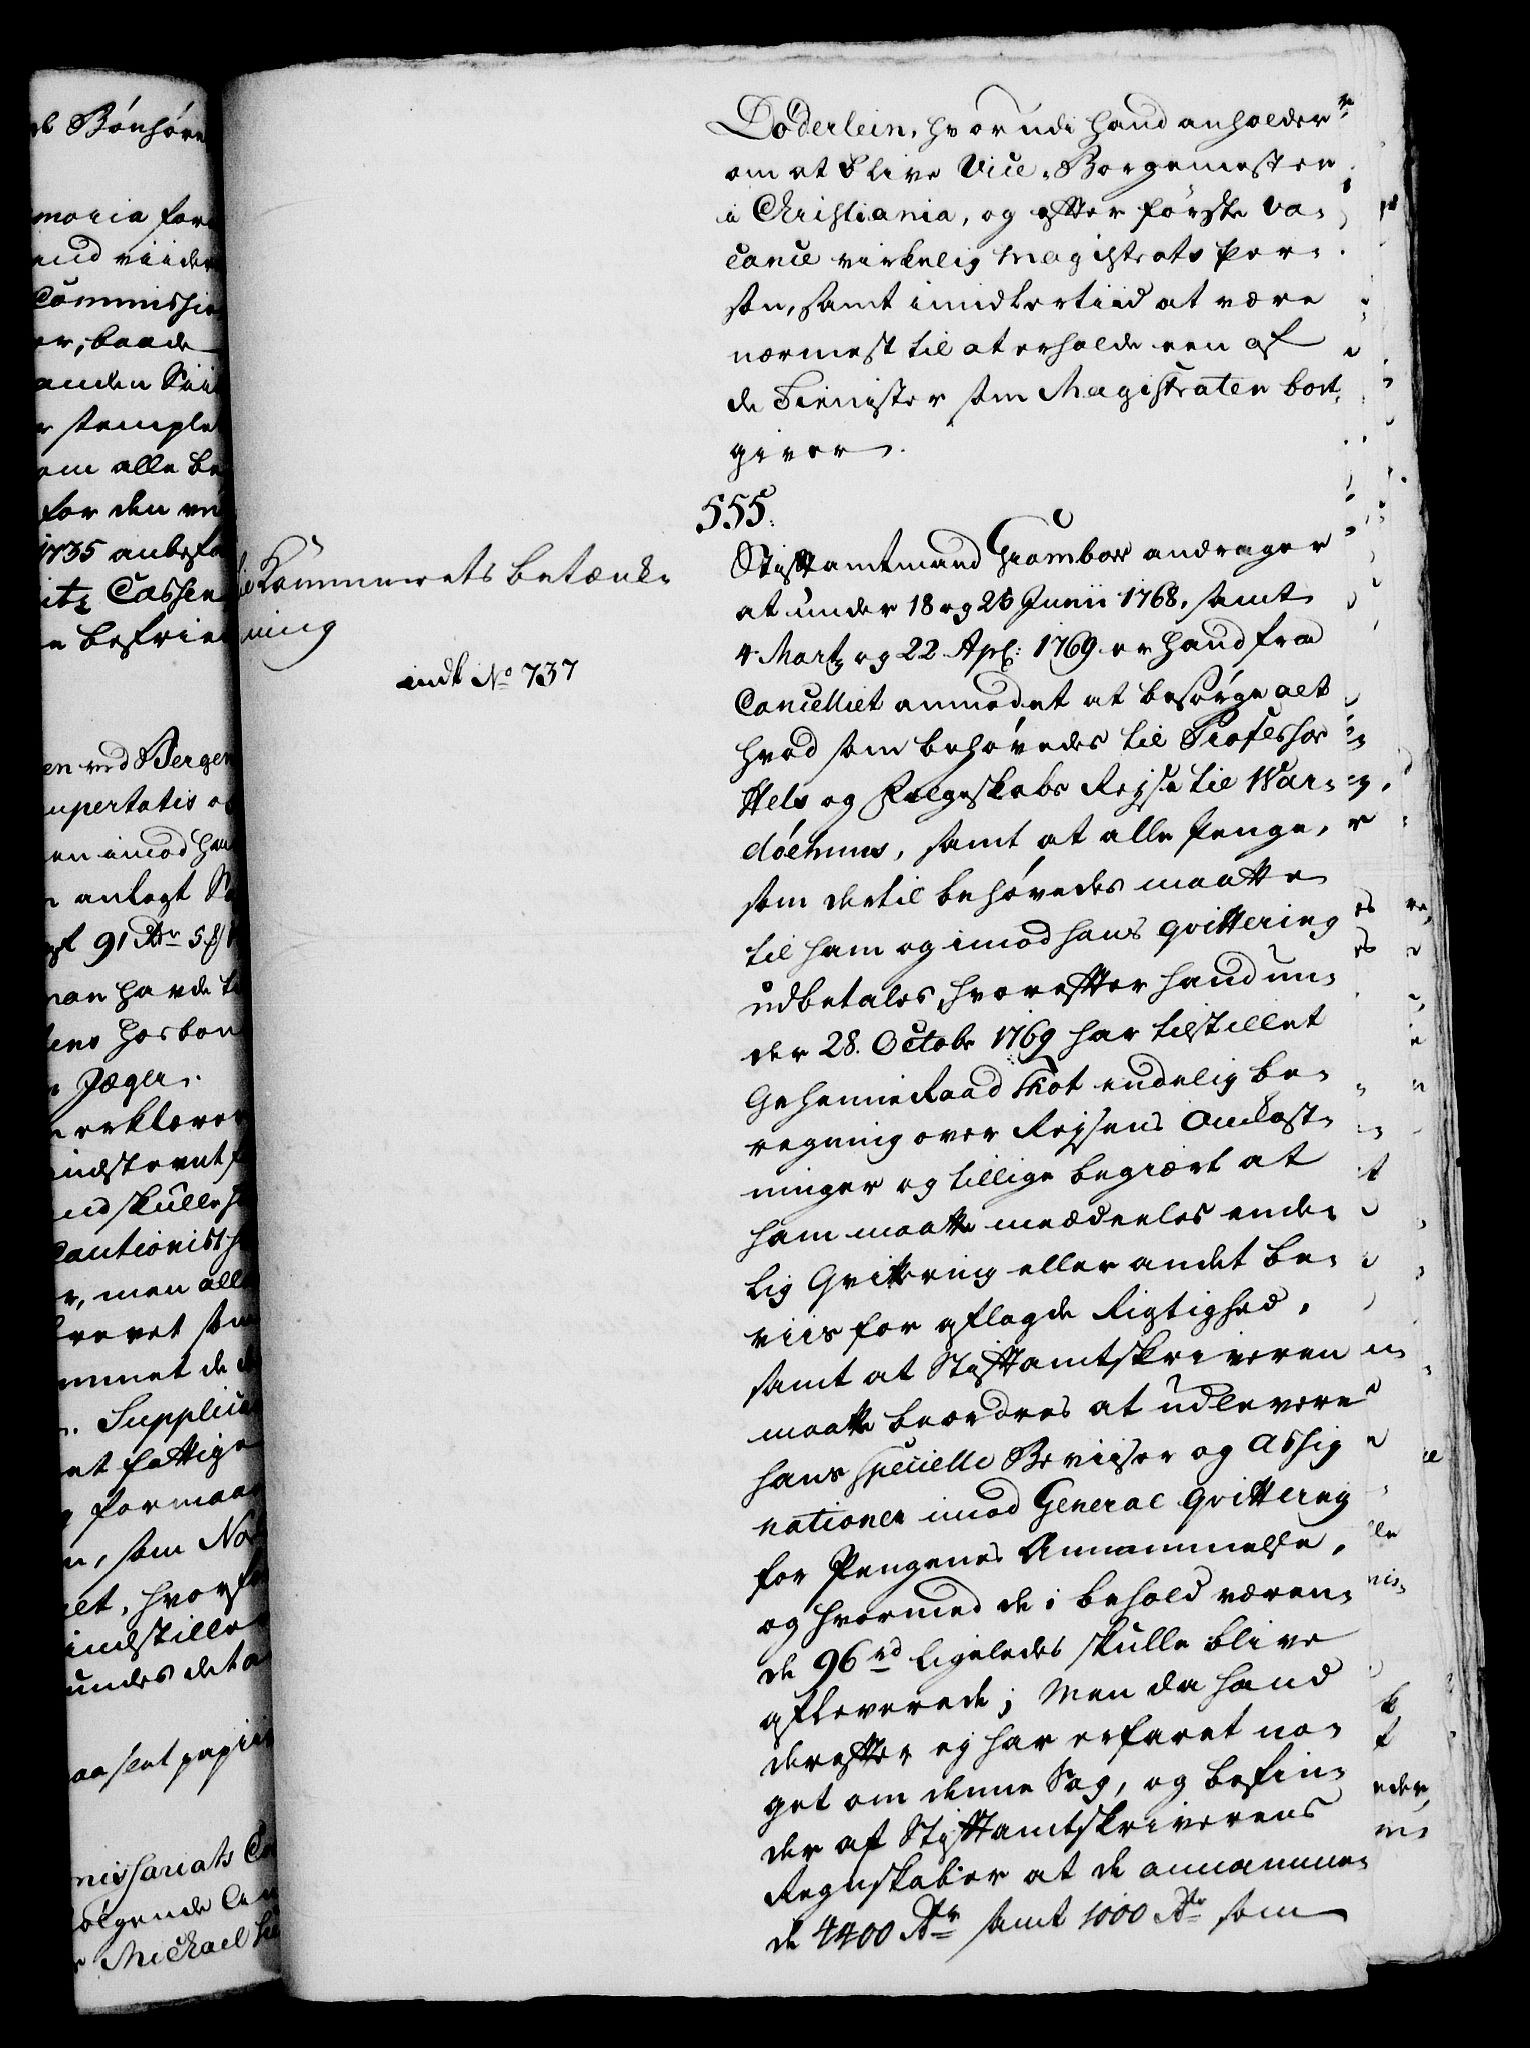 Döderlein, hvorudi hand anholder
om at blive Vice-Borgemester
i Christiania, og effter förste va-
cance virkelig Magistrats Per-
son, samt imidlertiid at være
nærmest til at erholde een af
de Tienister som Magistraten bort-
giver.
555.
Stiftamtmand Grambow andrager
at under 18 og 26 Junii 1768, samt
4 Martz og 22 Apl: 1769 er hand fra
Cancelliet anmodet at besörge alt
hvad som behövedes til Professor
Hels og Fölgeskabs Rejse til War-
döehuus, samt at alle Penge,
som dertil behövedes maatte
til ham og imod hans qvittering
udbetales, hvoreffter hand un-
der 28. Octobr 1769 har tilstillet
GeheimeRaad Thot endelig be-
regning over Rejsens Omkost-
ninger og tillige begiært at
ham maatte meddeeles ende-
lig Qvittering eller andet be-
viis for aflagde Rigtighed,
samt at Stiftamtskriveren
maatte beordres at udlevere
hans specielle Beviiser og Assig
nationer imod General qvittering
for Pengenes Annammelse,
og hvormed de i behold væren-
de 96 rd ligeledes skulle blive
afleverede; Men da hand
dereffter ej har erfaret no-
get om denne Sag, og befin-
der af Stiftamtskriverens
Regnskaber at de annamme-
de 4400 Rdr samt 1000 Rdr som
Kammerets betænk-
ning
indk No 737